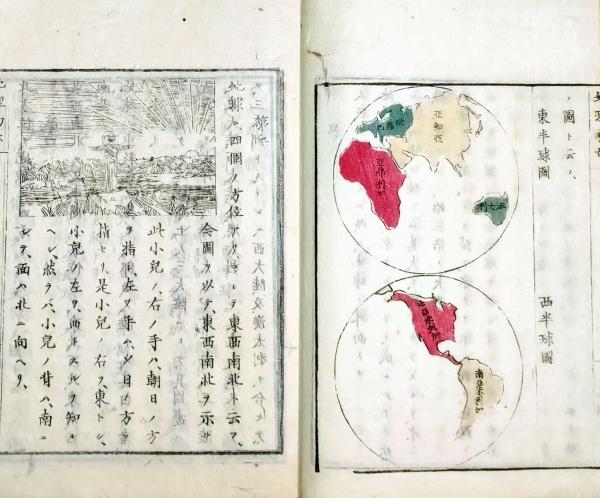 ノ圖ト云フ、
東半球圖
西半球圖
歐羅巴
亞細亞
亞弗利加
南亞米利加
第三
四個ノ方位アリ、是レヲ東西南北ト云フ、
今圖ヲ以テ、東西南北ヲ示ス
此小兒ノ、右ノ手ハ、朝日ノ方
ヲ指シ、左ノ手ハ、夕日ノ方ヲ
指セリ、是小兒ノ右ヲ、東トシ、
小兒ノ左ヲ、西トスルヲ知ル
ベシ、然ラバ、小兒ノ背ハ、南ニ
シテ、面ハ北ニ向ヘリ、